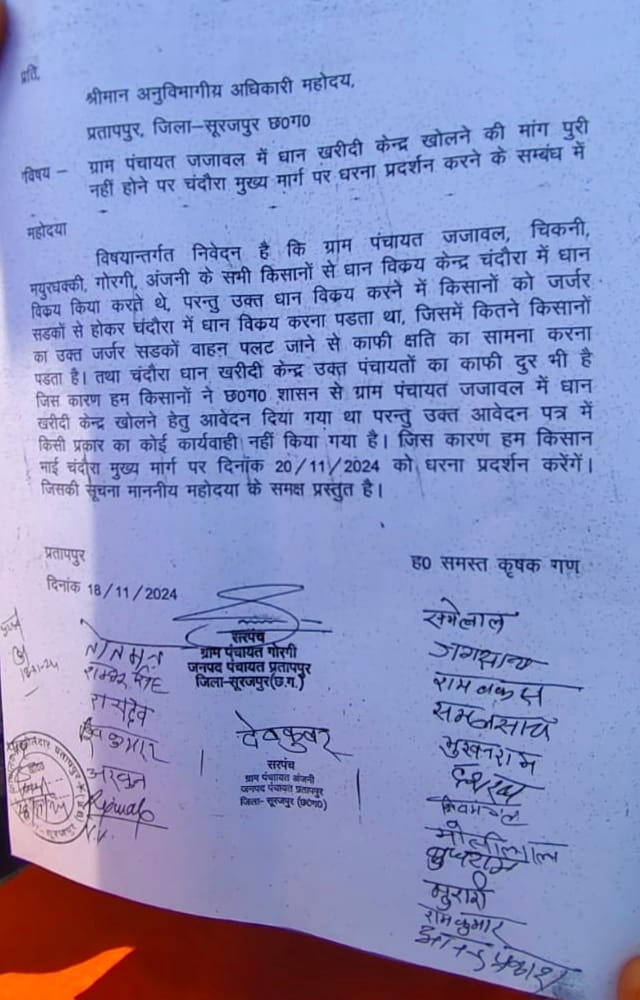 प्रति,
श्रीमान अनुविभागीय अधिकारी महोदय,
प्रतापपुर, जिला–सूरजपुर छ0ग0
विषय – ग्राम पंचायत जजावल में धान खरीदी केन्द्र खोलने की मांग पुरी
नहीं होने पर चंदौरा मुख्य मार्ग पर धरना प्रदर्शन करने के सम्बंध में
महोदया
विषयान्तर्गत निवेदन है कि ग्राम पंचायत जजावल, चिकनी,
मयुरधक्की, गोरगी, अंजनी के सभी किसानों से धान विक्रय केन्द्र चंदौरा में धान
विक्रय किया करते थे, परन्तु उक्त धान विक्रय करने में किसानों को जर्जर
सडकों से होकर चंदौरा में धान विक्रय करना पडता था, जिसमें कितने किसानों
का उक्त जर्जर सडकों वाहन पलट जाने से काफी क्षति का सामना करना
पडता है। तथा चंदौरा धान खरीदी केन्द्र उक्त पंचायतों का काफी दुर भी है
जिस कारण हम किसानों ने छ0ग0 शासन से ग्राम पंचायत जजावल में धान
खरीदी केन्द्र खोलने हेतु आवेदन दिया गया था परन्तु उक्त आवेदन पत्र में
किसी प्रकार का कोई कार्यवाही नहीं किया गया है। जिस कारण हम किसान
भाई चंदौरा मुख्य मार्ग पर दिनांक 20/11/2024 को धरना प्रदर्शन करेंगें।
जिसकी सूचना माननीय महोदया के समक्ष प्रस्तुत है।
प्रतापपुर
दिनांक 18/11/2024
ह0 समस्त कृषक गण
सरपंच
ग्राम पंचायत गोरगी
जनपद पंचायत प्रतापपुर
जिला-सूरजपुर(छ.ग.)
देवकुवर
सरपंच
ग्राम पंचायत अंजनी
जनपद पंचायत प्रतापपुर
जिला- सूरजपुर (छ0ग0)
रामलाल
जगसाय
दशरथ
मोतीलाल
मुरारी
रामकुमार